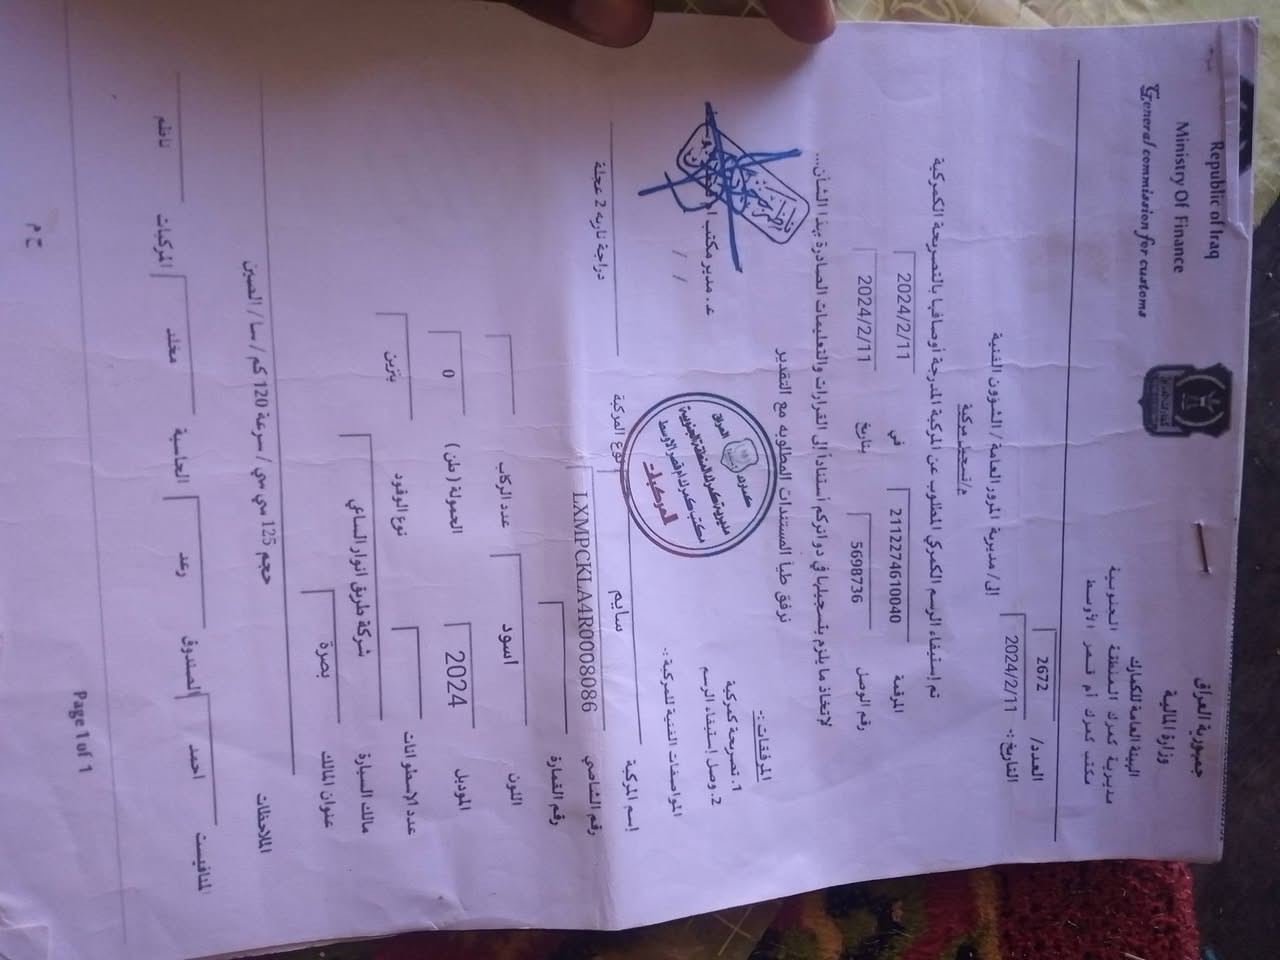 جمهورية العراق
وزارة المالية
الهيئة العامة للكمارك
مديرية كمرك المنطقة الجنوبية
مكتب كمرك أم قصر الأوسط
Republic of Iraq
Ministry Of Finance
General commission for customs
العدد/ 2672
التاريخ :- 2024/2/11
إلى/ مديرية المرور العامة / الشؤون الفنية
م/تسجيل مركبة
تم إستيفاء الرسم الكمركي المطلوب عن المركبة المدرجة أوصافها بالتصريحة الكمركية
المرقمة 2112274610040 في 2024/2/11
رقم الوصل 5698736 بتاريخ 2024/2/11
لإتخاذ ما يلزم بتسجيلها في دوائركم أستناداً إلى القرارات والتعليمات الصادرة بهذا الشأن...
نرفق طيا المستندات المطلوبه مع التقدير
المرفقات :-
1. تصريحة كمركية
2. وصل إستيفاء الرسم
ع. مدير مكتب
/ /
كمارك
العراق
مديرية كمرك المنطقة الجنوبية
مكتب كمرك ام قصر الاوسط
المركبات
المواصفات الفنية للمركبة :-
إسم المركبة سايم نوع المركبة دراجة ناريه 2 عجلة
رقم الشاصي LXMPCKLA4R0008086
رقم القمارة
اللون اسود عدد الركاب
الموديل 2024 الحمولة (طن) 0
عدد الإسطوانات نوع الوقود بنزين
مالك السيارة شركة طريق انوار الساعي
عنوان المالك بصرة
الملاحظات حجم 125 سي سي / سرعة 120 كم / سا / الصين
المنافيست احمد الصندوق رعد الحاسبة مخلد المركبات ناظم
ح م
Page 1 of 1